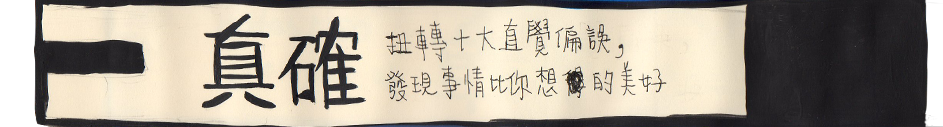 真確
扭轉十大直覺偏誤，
發現事情比你想的美好